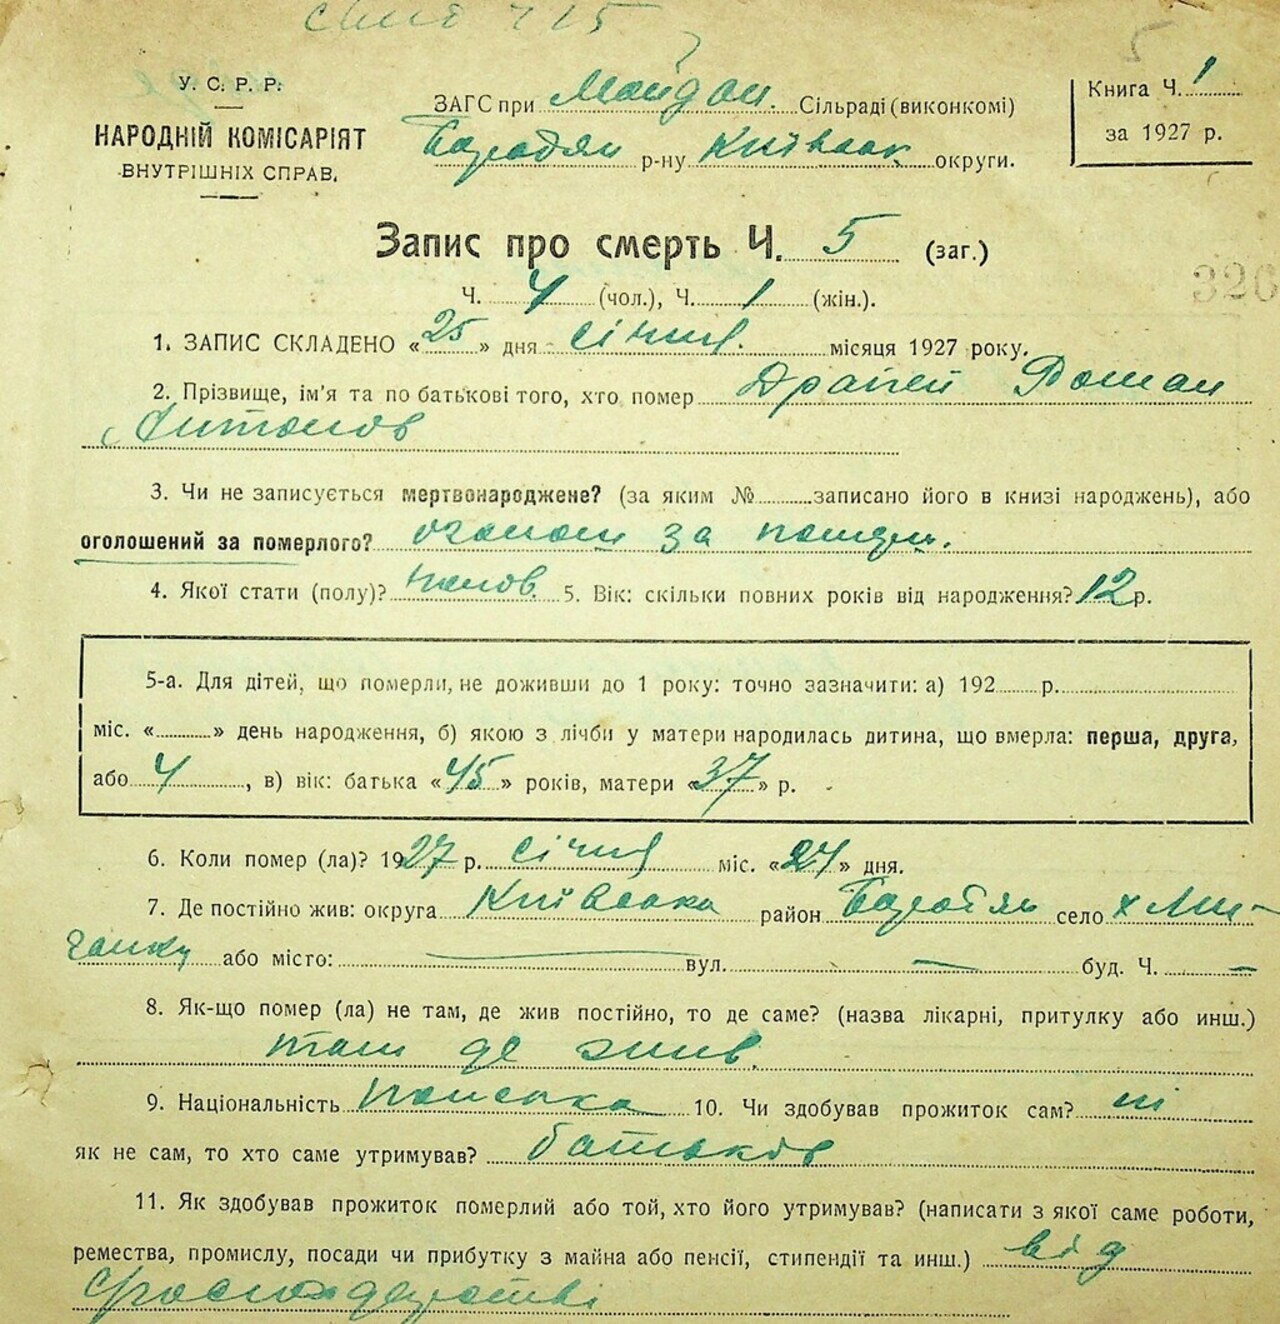 У. С. Р. Р.
НАРОДНІЙ КОМІСАРІЯТ
ВНУТРІШНІХ СПРАВ.
ЗАГС при Майдан. Сільраді (виконкомі)
Бородян р-ну Київськ округи.
Книга Ч. 1
за 1927 р.
Запис про смерть Ч. 5 (заг.)
326
Ч. 4 (чол.), Ч. 1 (жін.).
1. ЗАПИС СКЛАДЕНО «25» дня січня. місяця 1927 року.
2. Прізвище, ім'я та по батькові того, хто помер Роман
Антонов
3. Чи не записується мертвонароджене? (за яким № записано його в книзі народжень), або
оголошений за померлого? за
4. Якої стати (полу)? 5. Вік: скільки повних років від народження? 12 р.
5-а. Для дітей, що померли, не доживши до 1 року: точно зазначити: а) 192 р.
міс. « » день народження, б) якою з лічби у матери народилась дитина, що вмерла: перша, друга,
або 4, в) вік: батька «45» років, матери «37» р.
6. Коли помер (ла)? 1927 р. січня міс. «24» дня.
7. Де постійно жив: округа Київська район Бородян село х
або місто: — вул. — буд. Ч. —
8. Як-що помер (ла) не там, де жив постійно, то де саме? (назва лікарні, притулку або инш.)
там де жив.
9. Національність 10. Чи здобував прожиток сам? ні
як не сам, то хто саме утримував? батьків
11. Як здобував прожиток померлий або той, хто його утримував? (написати з якої саме роботи,
ремества, промислу, посади чи прибутку з майна або пенсії, стипендії та инш.) від